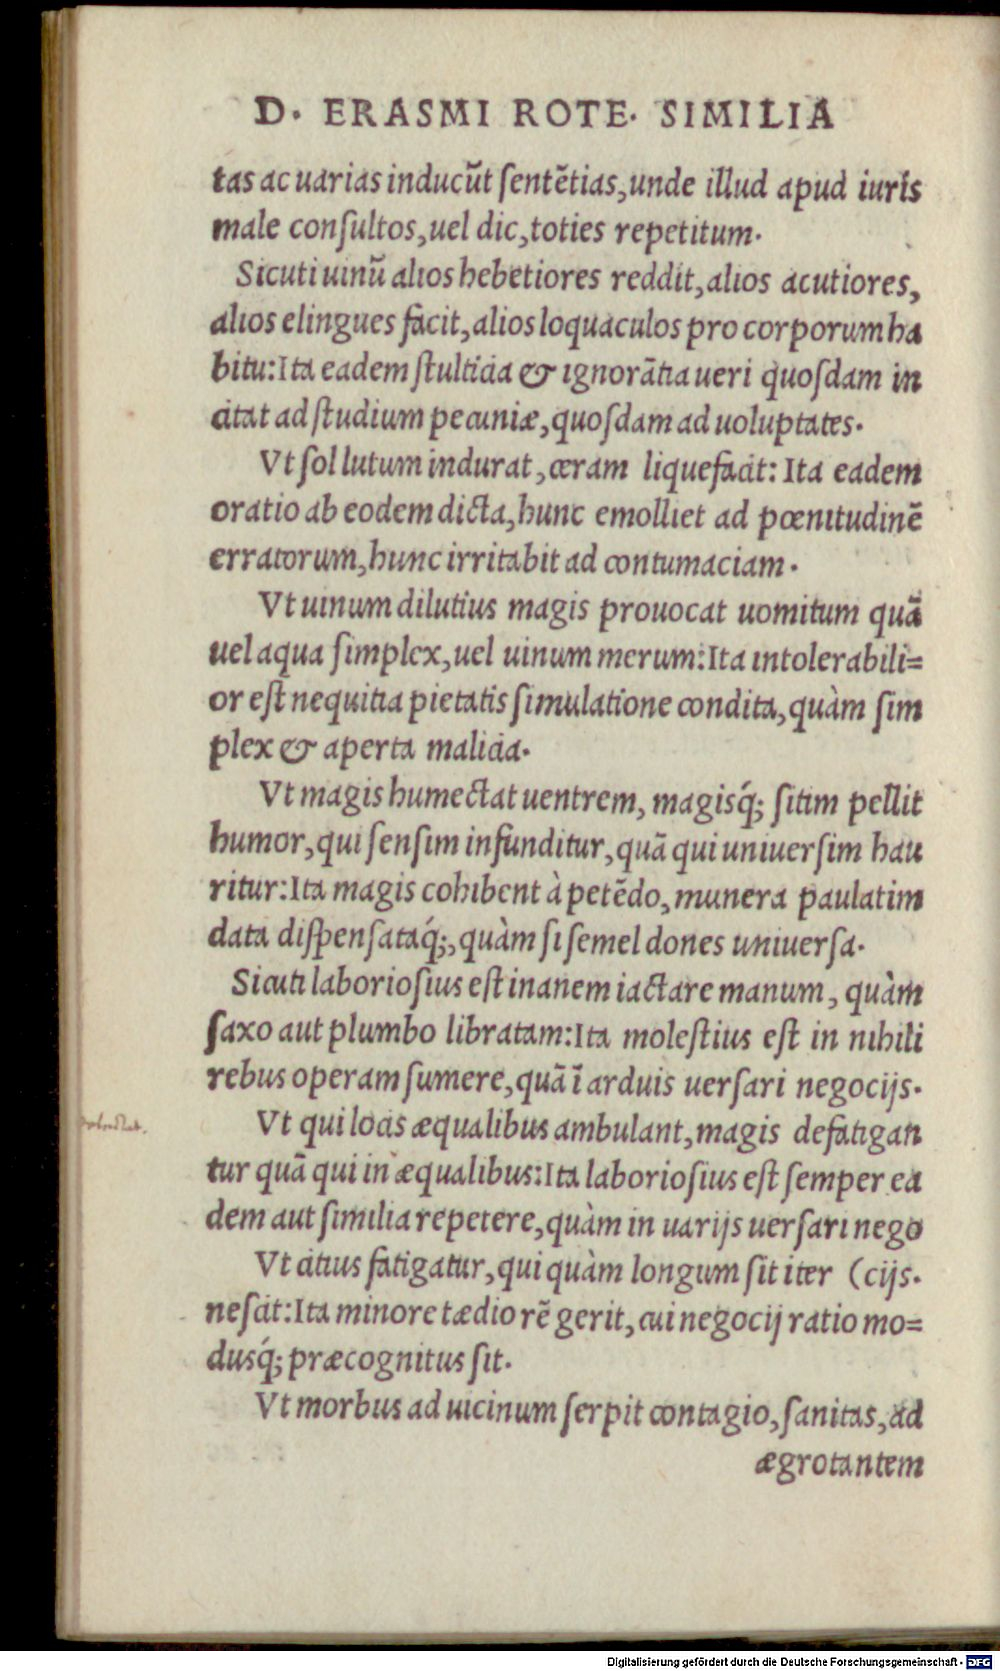 D. ERASMI ROTE. SIMILIA
tas ac uarias inducũt ſentẽtias,unde illud apud iuris
male conſultos,uel dic,toties repetitum.
Sicuti uinũ alios hebetiores reddit,alios acutiores,
alios elingues facit,alios loquaculos pro corporum ha
bitu:Ita eadem ſtulticia & ignorãtia ueri quoſdam in
citat ad ſtudium pecuniæ,quoſdam ad uoluptates.
Vt ſol lutum indurat,ceram liquefacit: Ita eadem
oratio ab eodem dicta,hunc emolliet ad pœnitudinẽ
erratorum,hunc irritabit ad contumaciam.
Vt uinum dilutius magis prouocat uomitum quã
uel aqua ſimplex,uel uinum merum:Ita intolerabili=
or eſt nequitia pietatis ſimulatione condita,quàm ſim
plex & aperta malicia.
Vt magis humectat uentrem, magisq́; ſitim pellit
humor,qui ſenſim infunditur,quã qui uniuerſim hau
ritur:Ita magis cohibent à petẽdo,munera paulatim
data diſpenſataq́;,quàm ſi ſemel dones uniuerſa.
Sicuti laborioſius eſt inanem iactare manum, quàm
ſaxo aut plumbo libratam:Ita moleſtius eſt in nihili
rebus operam ſumere,quã ĩ arduis uerſari negocijs.
Vt qui locis æqualibus ambulant,magis defatigan
tur quã qui in æqualibus:Ita laborioſius eſt ſemper ea
dem aut ſimilia repetere,quàm in uarijs uerſari nego
Vt citius fatigatur,qui quàm longum ſit iter (cijs.
neſcit:Ita minore tædio rẽ gerit,cui negocij ratio mo=
dusq́; præcognitus ſit.
Vt morbus ad uicinum ſerpit contagio,ſanitas,ad
ægrotantem
Digitalisierung gefördert durch die Deutsche Forschungsgemeinschaft - DFG